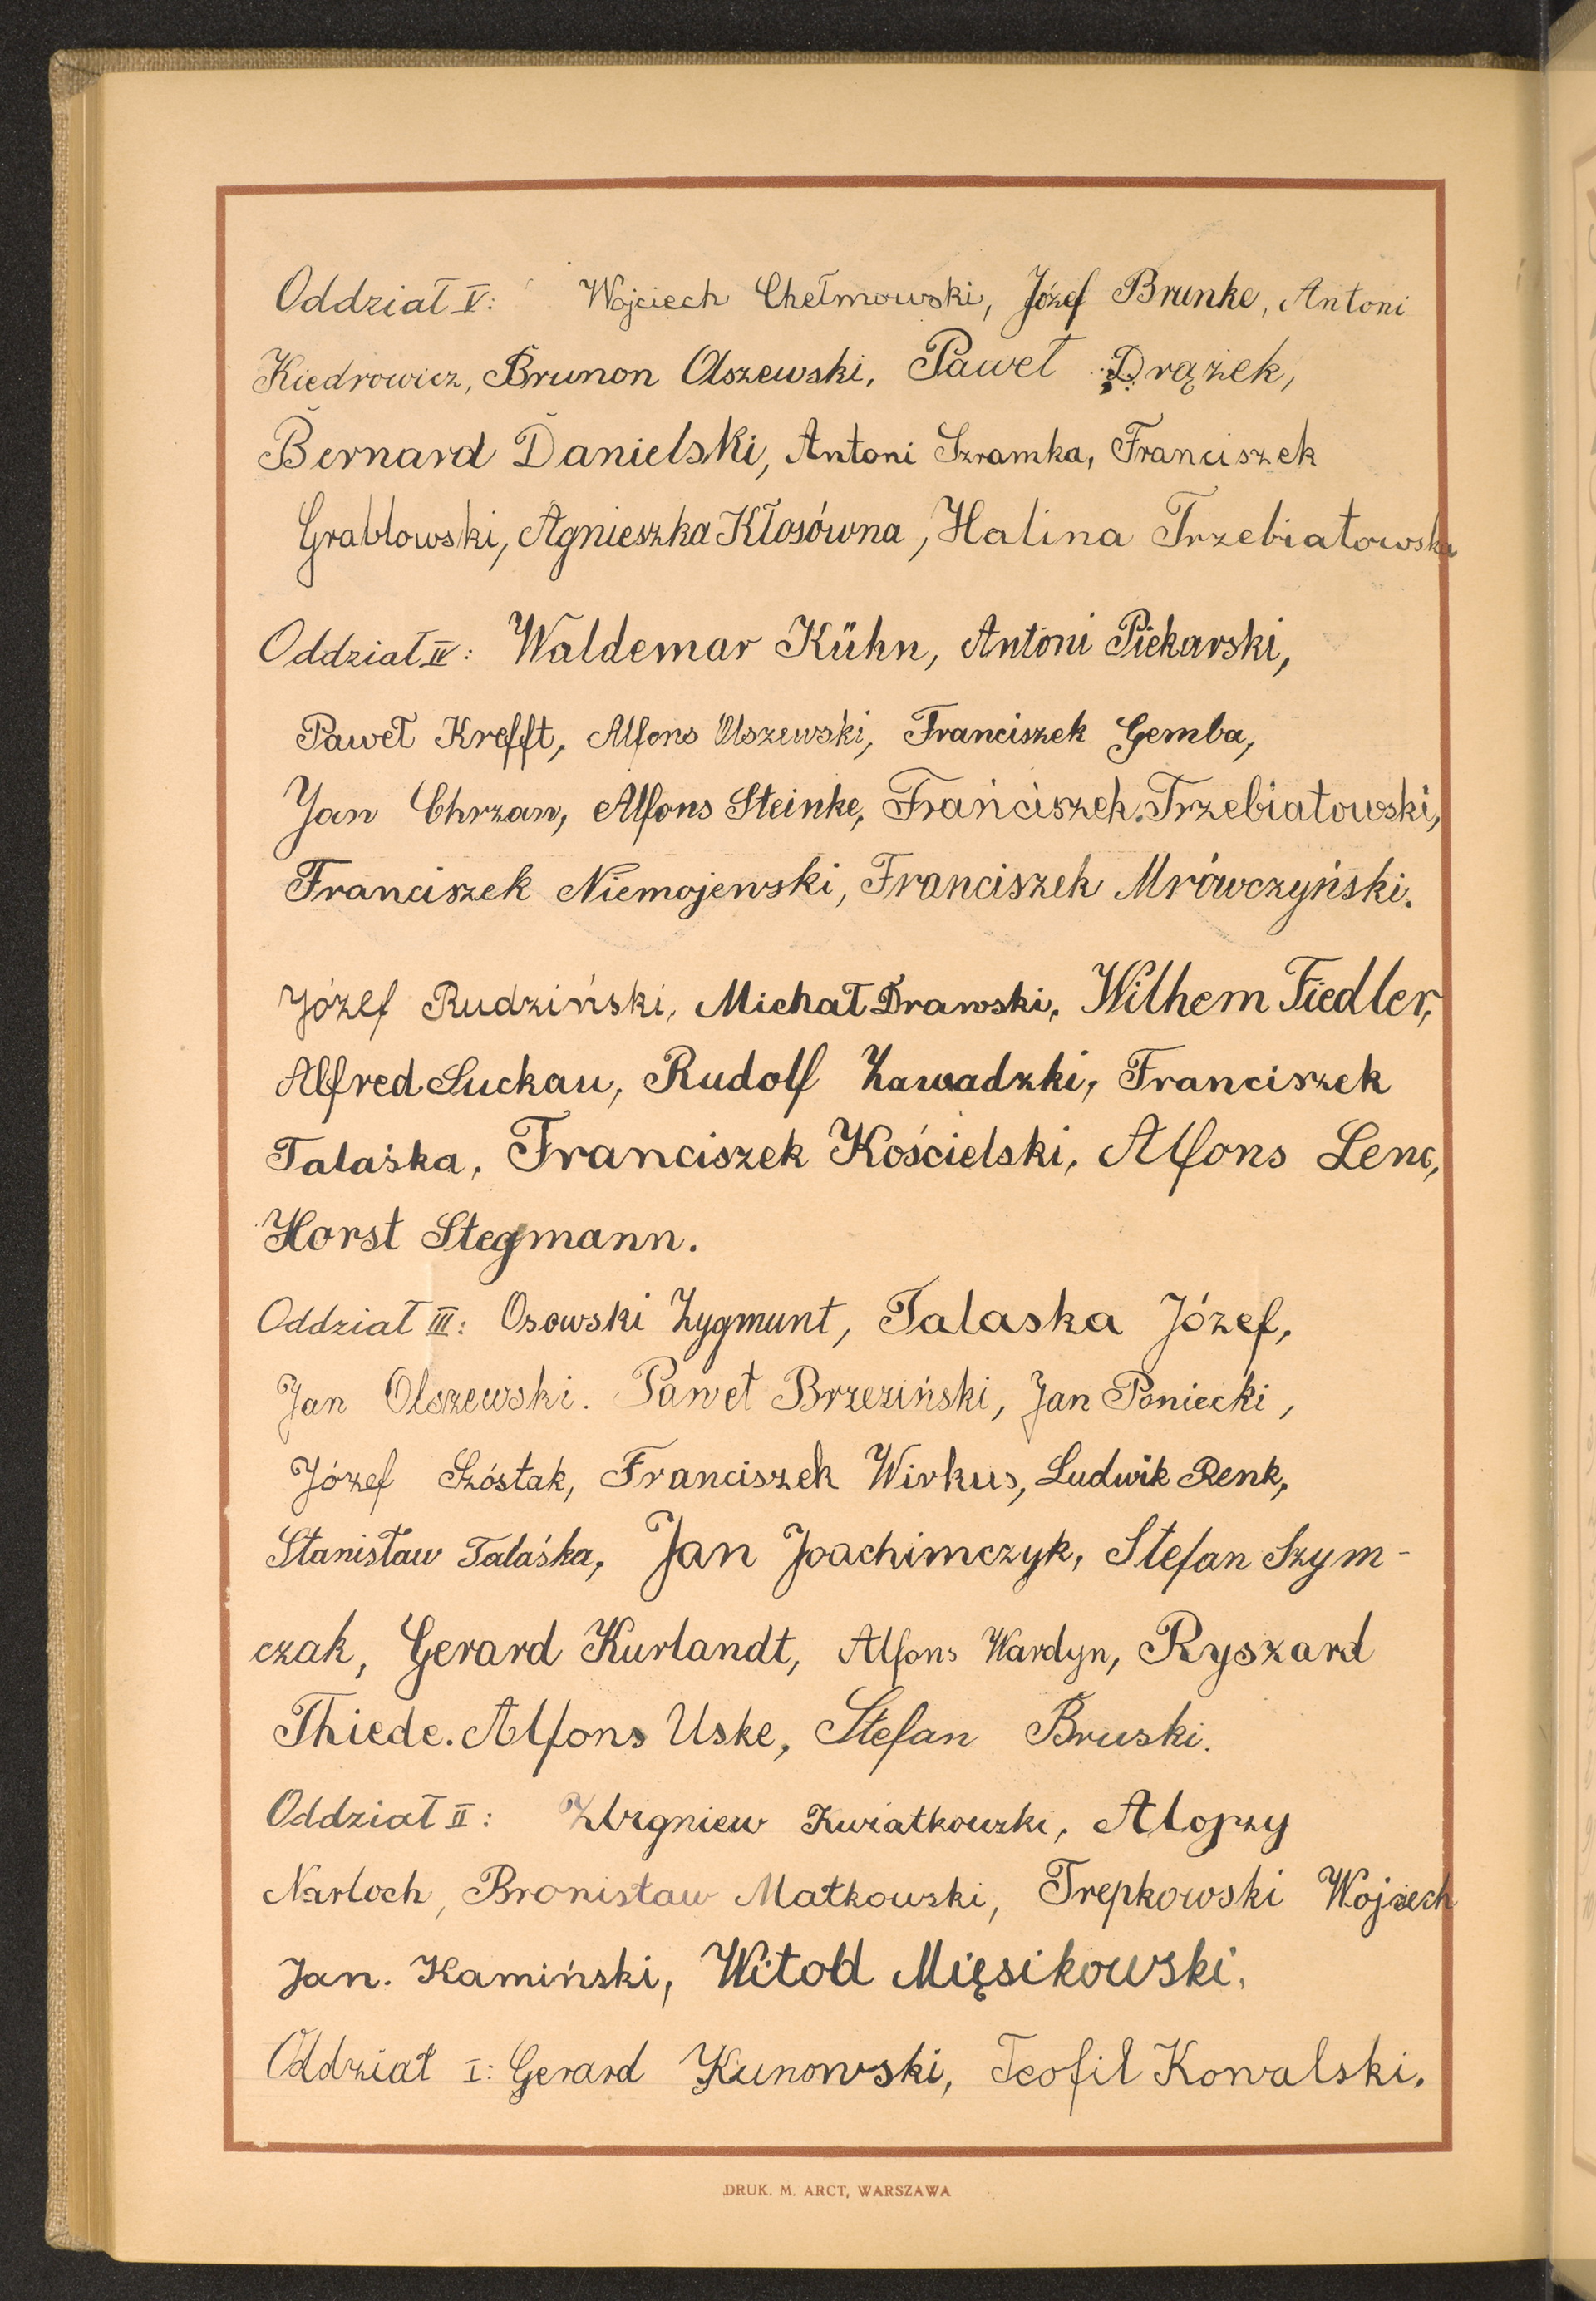 Oddział V: Wojciech Chełmowski, Józef Brunke, Antoni
Kiedrowicz, Brunon Olszewski, Paweł Drążek,
Bernard Danielski, Antoni Szramka, Franciszek
Grabłowski, Agnieszka Kłosówna, Halina Trzebiatowska
Oddział IV: Waldemar Kühn, Antoni Piekarski,
Paweł Krefft, Alfons Olszewski, Franciszek Gemba,
Jan Chrzan, Alfons Steinke, Franciszek Trzebiatowski,
Franciszek Niemojewski, Franciszek Mrówczyński.
Józef Rudziński, Michał Drawski, Wilhem Fiedler,
Alfred Luckau, Rudolf Zawadzki, Franciszek
Talaśka, Franciszek Kościelski, Alfons Lenc,
Horst Stegmann.
Oddział III: Osowski Zygmunt, Talaska Józef,
Jan Olszewski. Paweł Brzeziński, Jan Poniecki,
Józef Szóstak, Franciszek Wirkus, Ludwik Renk,
Stanisław Talaśka, Jan Joachimczyk, Stefan Szym-
czak, Gerard Kurlandt, Alfons Wardyn, Ryszard
Thiede. Alfons Uske, Stefan Bruski.
Oddział II: Zbigniew Kwiatkowski, Alojzy
Narloch, Bronisław Matkowski, Trepkowski Wojciech
Jan. Kamiński, Witold Mięsikowski,
Oddział I: Gerard Kunowski, Teofil Kowalski.
DRUK. M. ARCT, WARSZAWA